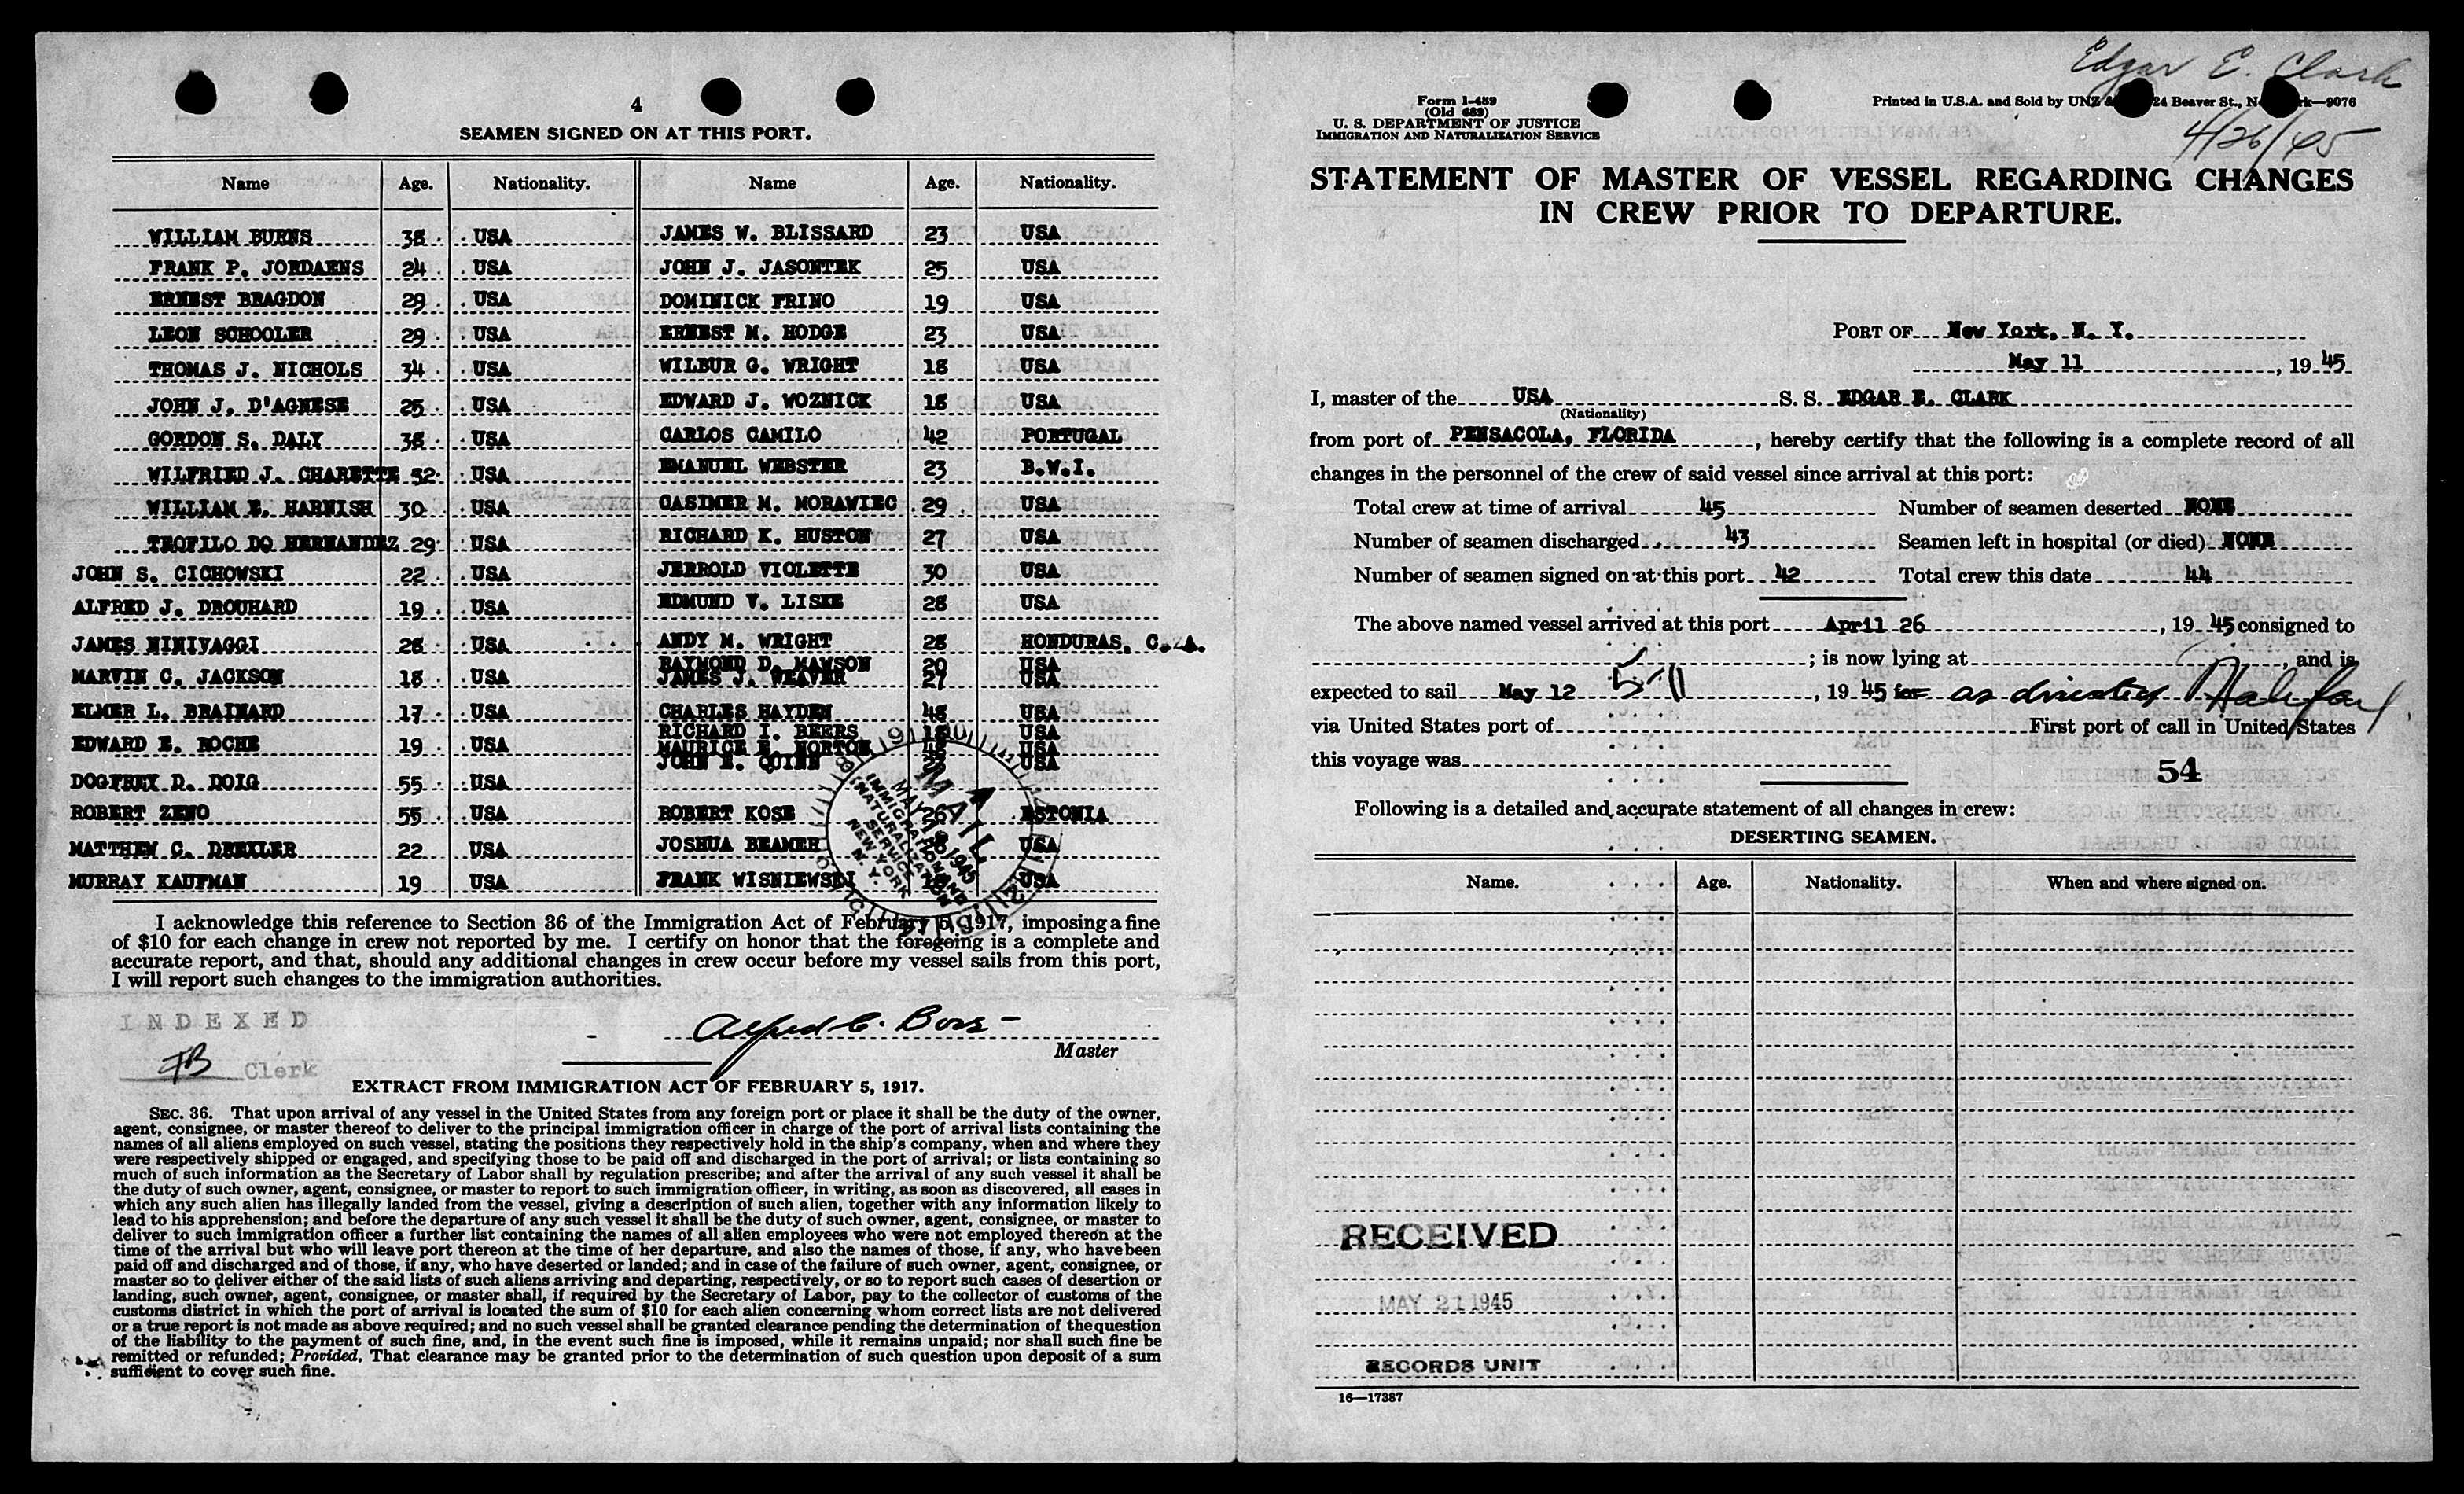 4
SEAMEN SIGNED ON AT THIS PORT.
Name Age. Nationality. Name Age. Nationality.
WILLIAM BURNS 38 USA JAMES W. BLISSARD 23 USA
FRANK P. JORDAENS 24 USA JOHN J. JASONTEK 25 USA
ERNEST BRAGDON 29 USA DOMINICK FRINO 19 USA
LEON SCHOOLER 29 USA ERNEST M. HODGE 23 USA
THOMAS J. NICHOLS 34 USA WILBUR G. WRIGHT 18 USA
JOHN J. D'AGNESE 25 USA EDWARD J. WOZNICK 18 USA
GORDON S. DALY 38 USA CARLOS CAMILO 42 PORTUGAL
WILFRIED J. CHARETTE 52 USA EMANUEL WEBSTER 23 B.W.I.
WILLIAM E. HARNISH 30 USA CASIMER M. MORAWIEC 29 USA
TEOFILO DO HERNANDEZ 29 USA RICHARD K. HUSTON 27 USA
JOHN S. CICHOWSKI 22 USA JERROLD VIOLETTE 30 USA
ALFRED J. DROUHARD 19 USA EDMUND V. LISKE 28 USA
JAMES NINIVAGGI 28 USA ANDY M. WRIGHT 28 HONDURAS, C.A.
RAYMOND D. MAWSON 20 USA
MARVIN C. JACKSON 18 USA JAMES J. WEAVER 27 USA
ELMER L. BRAINARD 17 USA CHARLES HAYDEN 48 USA
RICHARD I. BEERS 18 USA
EDWARD E. ROCHE 19 USA MAURICE E. NORTON USA
JOHN E. QUINN USA
DOGFREY D. DOIG 55 USA
ROBERT ZENO 55 USA ROBERT KOSE 26 ESTONIA
MATTHEW C. DREXLER 22 USA JOSHUA BEAMER USA
MURRAY KAUFMAN 19 USA FRANK WISNIEWSKI USA
MAIL
MAY 1945
IMMIGRATION AND
NATURALIZATION
SERVICE
NEW YORK
N. Y.
I acknowledge this reference to Section 36 of the Immigration Act of February 5, 1917, imposing a fine
of $10 for each change in crew not reported by me. I certify on honor that the foregoing is a complete and
accurate report, and that, should any additional changes in crew occur before my vessel sails from this port,
I will report such changes to the immigration authorities.
INDEXED
Alfred C. Bors
Master
FB Clerk
EXTRACT FROM IMMIGRATION ACT OF FEBRUARY 5, 1917.
SEC. 36. That upon arrival of any vessel in the United States from any foreign port or place it shall be the duty of the owner,
agent, consignee, or master thereof to deliver to the principal immigration officer in charge of the port of arrival lists containing the
names of all aliens employed on such vessel, stating the positions they respectively hold in the ship's company, when and where they
were respectively shipped or engaged, and specifying those to be paid off and discharged in the port of arrival; or lists containing so
much of such information as the Secretary of Labor shall by regulation prescribe; and after the arrival of any such vessel it shall be
the duty of such owner, agent, consignee, or master to report to such immigration officer, in writing, as soon as discovered, all cases in
which any such alien has illegally landed from the vessel, giving a description of such alien, together with any information likely to
lead to his apprehension; and before the departure of any such vessel it shall be the duty of such owner, agent, consignee, or master to
deliver to such immigration officer a further list containing the names of all alien employees who were not employed thereon at the
time of the arrival but who will leave port thereon at the time of her departure, and also the names of those, if any, who have been
paid off and discharged and of those, if any, who have deserted or landed; and in case of the failure of such owner, agent, consignee, or
master so to deliver either of the said lists of such aliens arriving and departing, respectively, or so to report such cases of desertion or
landing, such owner, agent, consignee, or master shall, if required by the Secretary of Labor, pay to the collector of customs of the
customs district in which the port of arrival is located the sum of $10 for each alien concerning whom correct lists are not delivered
or a true report is not made as above required; and no such vessel shall be granted clearance pending the determination of the question
of the liability to the payment of such fine, and, in the event such fine is imposed, while it remains unpaid; nor shall such fine be
remitted or refunded; Provided, That clearance may be granted prior to the determination of such question upon deposit of a sum
sufficient to cover such fine.
Edgar E. Clark
4/26/45
Form I-489
(Old 689)
U. S. DEPARTMENT OF JUSTICE
IMMIGRATION AND NATURALIZATION SERVICE
Printed in U.S.A. and Sold by UNZ & 24 Beaver St., N rk—9076
STATEMENT OF MASTER OF VESSEL REGARDING CHANGES
IN CREW PRIOR TO DEPARTURE.
PORT OF New York, N. Y.
May 11, 1945
I, master of the USA S. S. EDGAR E. CLARK
(Nationality)
from port of PENSACOLA, FLORIDA, hereby certify that the following is a complete record of all
changes in the personnel of the crew of said vessel since arrival at this port:
Total crew at time of arrival 45 Number of seamen deserted NONE
Number of seamen discharged 43 Seamen left in hospital (or died) NONE
Number of seamen signed on at this port 42 Total crew this date 44
The above named vessel arrived at this port April 26, 1945 consigned to
; is now lying at , and is
expected to sail May 12 5-11, 1945 for as directed Halifax
via United States port of First port of call in United States
this voyage was
54
Following is a detailed and accurate statement of all changes in crew:
DESERTING SEAMEN.
Name. Age. Nationality. When and where signed on.
RECEIVED
MAY 21 1945
RECORDS UNIT
16—17387